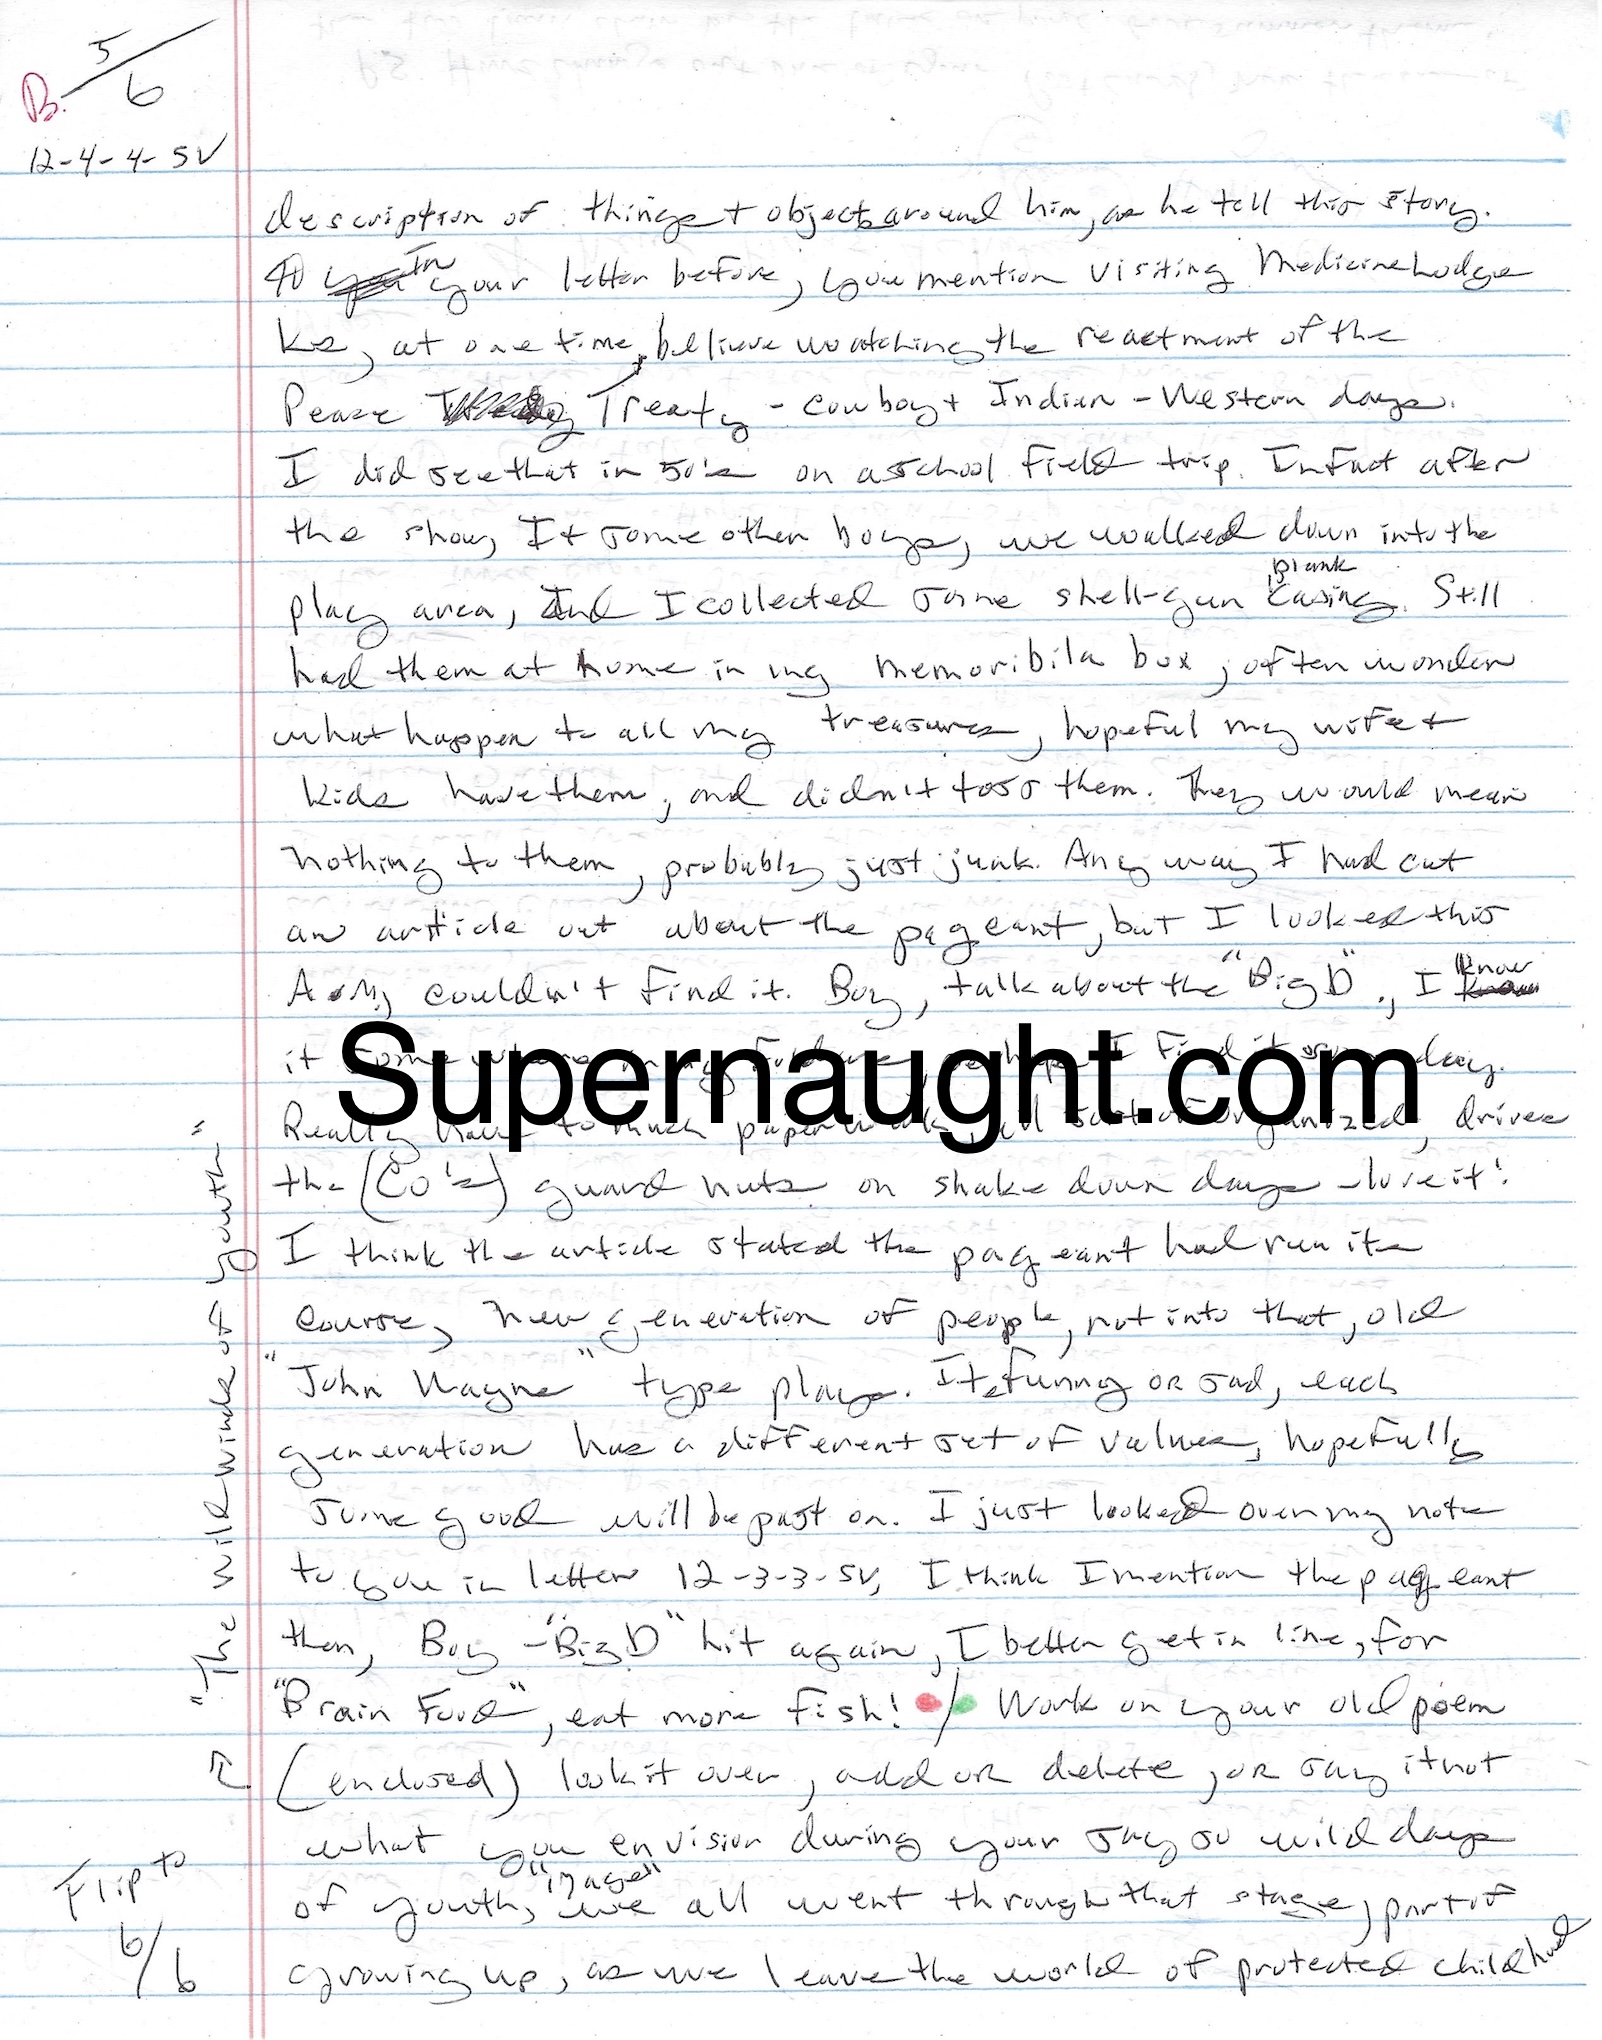 B. 5/6
12-4-4-5V
description of things + objects around him, as he tell this story.
In your letter before, you mention visiting Medicine Lodge
Ks, at one time, believe watching the reactment of the
Peace Treaty - cowboy + Indian - Western days.
I did see that in 50's on a school field trip. Infact after
the show, I + some other boys, we walked down into the
play area, And I collected some shell-gun blank casing. Still
had them at home in my memoribila box, often wonder
what happen to all my treasures, hopeful my wife +
kids have them, and didn't toss them. They would mean
nothing to them, probably just junk. Any way I had cut
an article out about the pageant, but I looked this
A.M, couldn't find it. Boy, talk about the "Big D"., I know
it some where in my I find it day.
Really have to much paper work, all sort of organized, drives
the (Co's) guard nuts on shake down days - love it!
I think the article stated the pageant had run its
course, new generation of people, not into that, old
"John Wayne" type plays. Its funny or sad, each
generation has a different set of values, hopefully
some good will be past on. I just looked over my note
to you in letter 12-3-3-5V, I think I mention the pageant
then, Boy - "Big D" hit again, I better get in line, for
"Brain Food", eat more fish! / Work on your old poem
(enclosed) look it over, add or delete, or say it not
what you envision during your say so wild days
of youth, "images" we all went through that stage, part of
growing up, as we leave the world of protected childhood
"The wild winds of youth"
Flip to
6/6
Supernaught.com